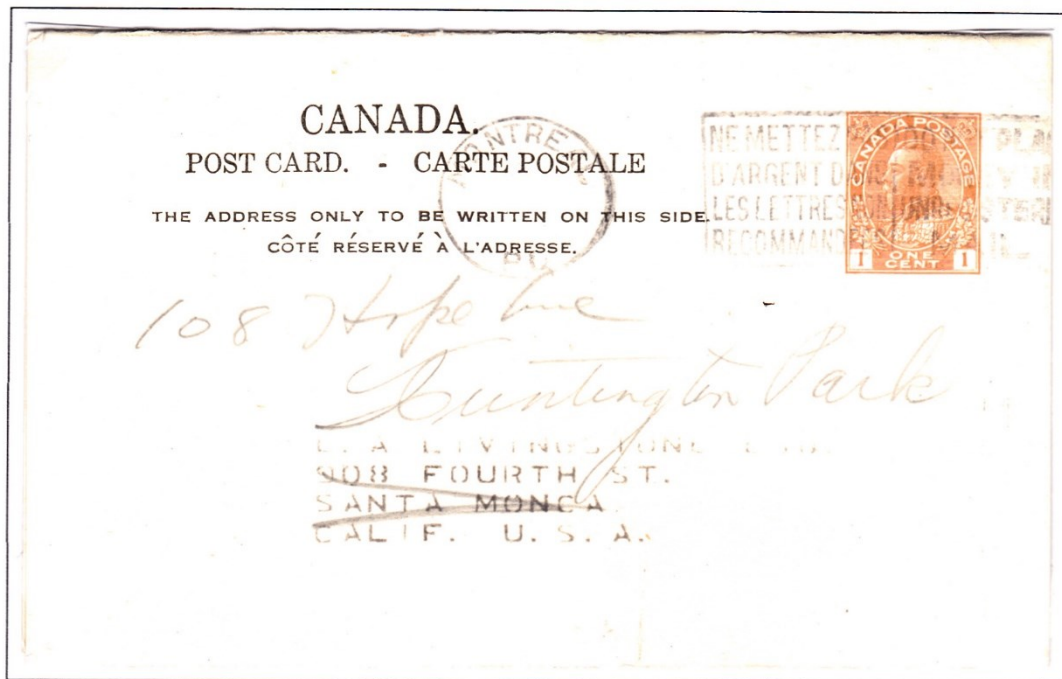 CANADA.
POST CARD. - CARTE POSTALE
THE ADDRESS ONLY TO BE WRITTEN ON THIS SIDE.
CÔTÉ RÉSERVÉ À L'ADRESSE.
MONTREAL
P.Q.
NE METTEZ
D'ARGENT
LES LETTRES
RECOMMAND
CANADA POSTAGE
1 ONE CENT 1
108 Hope Ave
Huntington Park
A LIVINGSTONE
908 FOURTH ST.
SANTA MONCA
CALIF. U.S.A.